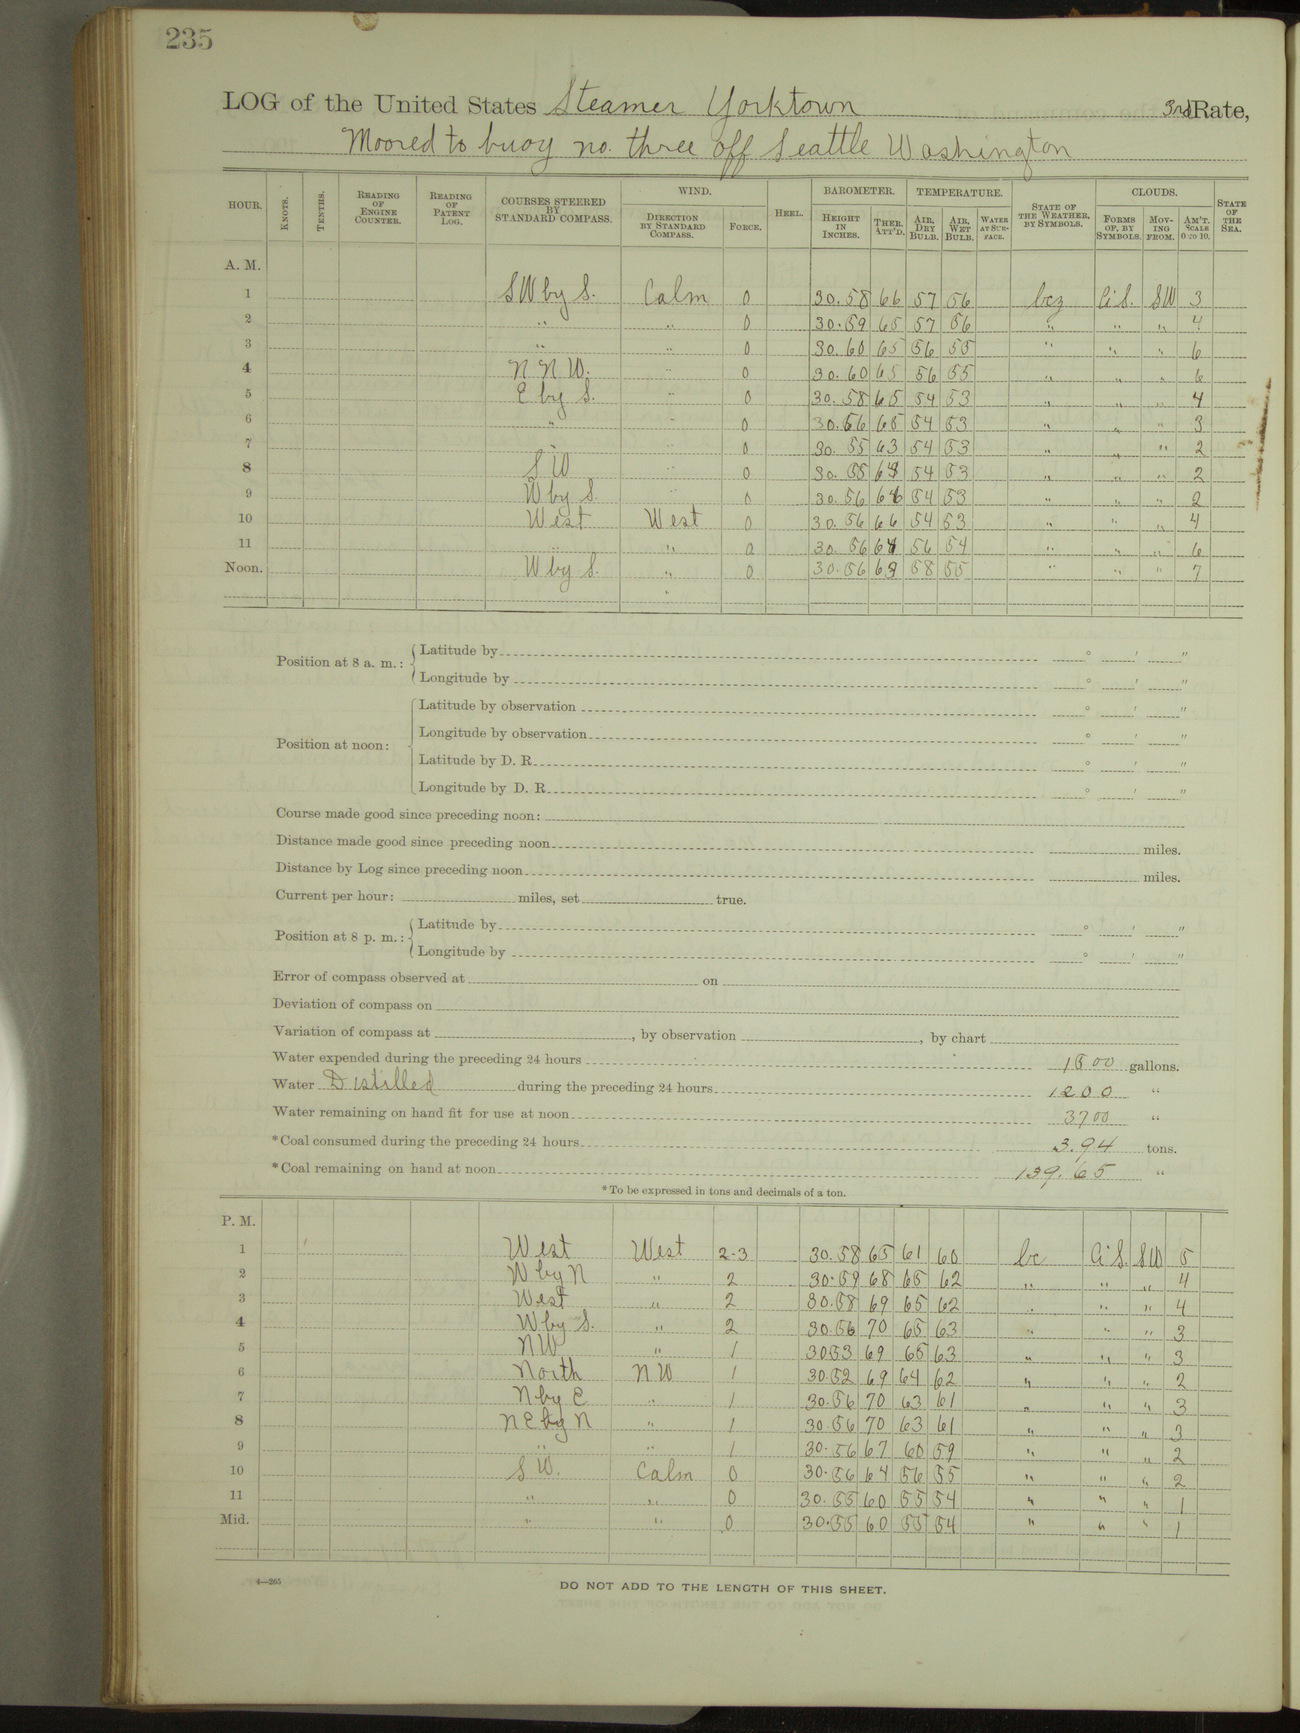 235
LOG of the United States Steamer Yorktown 3rd Rate,
Moored to buoy no. three off Seattle Washington
HOUR. KNOTS. TENTHS. READING OF ENGINE COUNTER. READING OF PATENT LOG. COURSES STEERED BY STANDARD COMPASS. WIND. DIRECTION BY STANDARD COMPASS. FORCE. HEEL. BAROMETER. HEIGHT IN INCHES. THER. ATT'D. TEMPERATURE. AIR, DRY BULB. AIR, WET BULB. WATER AT SURFACE. STATE OF THE WEATHER, BY SYMBOLS. CLOUDS. FORMS OF, BY SYMBOLS. MOVING FROM. AM'T. SCALE 0 TO 10. STATE OF THE SEA.
A. M.
1 SW by S. Calm 0 30.58 66 57 56 bcz Ci S. SW 3
2 " " 0 30.59 65 57 56 " " " 4
3 " " 0 30.60 65 56 55 " " " 6
4 N N W. " 0 30.60 65 56 55 " " " 6
5 E by S. " 0 30.58 65 54 53 " " " 4
6 " " 0 30.56 65 54 53 " " " 3
7 " " 0 30.55 63 54 53 " " " 2
8 S W " 0 30.55 54 53 " " " 2
9 W by S. " 0 30.56 54 53 " " " 2
10 West West 0 30.56 66 54 53 " " " 4
11 " " 0 30.56 56 54 " " " 6
Noon. W by S. " 0 30.56 69 58 55 " " " 7
"
Position at 8 a. m.: Latitude by ° ' "
Longitude by ° ' "
Position at noon: Latitude by observation ° ' "
Longitude by observation ° ' "
Latitude by D. R. ° ' "
Longitude by D. R. ° ' "
Course made good since preceding noon:
Distance made good since preceding noon miles.
Distance by Log since preceding noon miles.
Current per hour: miles, set true.
Position at 8 p. m.: Latitude by ° ' "
Longitude by ° ' "
Error of compass observed at on
Deviation of compass on
Variation of compass at , by observation , by chart
Water expended during the preceding 24 hours 1500 gallons.
Water Distilled during the preceding 24 hours 1200 "
Water remaining on hand fit for use at noon 3700 "
*Coal consumed during the preceding 24 hours 3.94 tons.
*Coal remaining on hand at noon 139.65 "
*To be expressed in tons and decimals of a ton.
P. M.
1 West West 2-3 30.58 65 61 60 bc Ci S. SW 5
2 W by N " 2 30.59 68 65 62 " " " 4
3 West " 2 30.58 69 65 62 " " " 4
4 W by S. " 2 30.56 70 65 63 " " " 3
5 NW " 1 30.53 69 65 63 " " " 3
6 North NW 1 30.52 69 64 62 " " " 2
7 N by E " 1 30.56 70 63 61 " " " 3
8 NE by N " 1 30.56 70 63 61 " " " 3
9 " " 1 30.56 67 60 59 " " " 2
10 S W. Calm 0 30.56 64 56 55 " " " 2
11 " " 0 30.55 60 55 54 " " " 1
Mid. " " 0 30.55 60 55 54 " " " 1
4—265
DO NOT ADD TO THE LENGTH OF THIS SHEET.